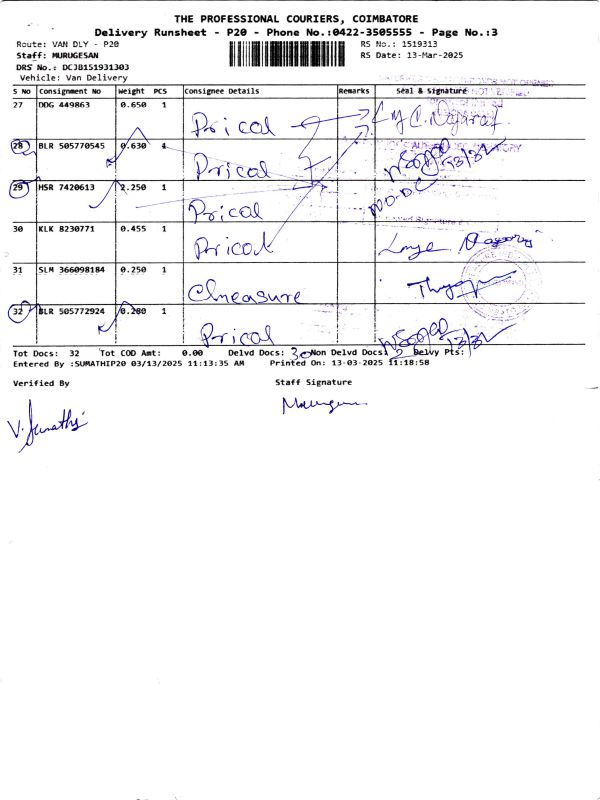 THE PROFESSIONAL COURIERS, COIMBATORE
Delivery Runsheet - P20 - Phone No.:0422-3505555 - Page No.:3
Route: VAN DLY - P20 RS No.: 1519313
Staff: MURUGESAN RS Date: 13-Mar-2025
DRS No.: DC3B151931303
Vehicle: Van Delivery
S No Consignment No Weight PCS Consignee Details Remarks Seal & Signature
27 DDG 449863 0.650 1 Prical
28 BLR 505770545 0.630 1 Prical
29 HSR 7420613 2.250 1 Prical
30 KLK 8230771 0.455 1 Prical
31 SLM 366098184 0.250 1 Clmeasure
32 BLR 505772924 0.280 1 Prical
Tot Docs: 32 Tot COD Amt: 0.00 Delvd Docs: 30 Non Delvd Docs: 2 Delvy Pts:
Entered By :SUMATHIP20 03/13/2025 11:13:35 AM Printed On: 13-03-2025 11:18:58
Verified By Staff Signature
V. Sumathi